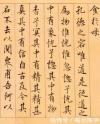 食於母
孔德之容唯道是從道之
為物唯恍唯惚惚兮恍兮
其中有象恍兮惚兮其中有物
窈兮冥兮其中有精其精
甚真其中有信自古及今其
名不去以閱衆甫吾何以